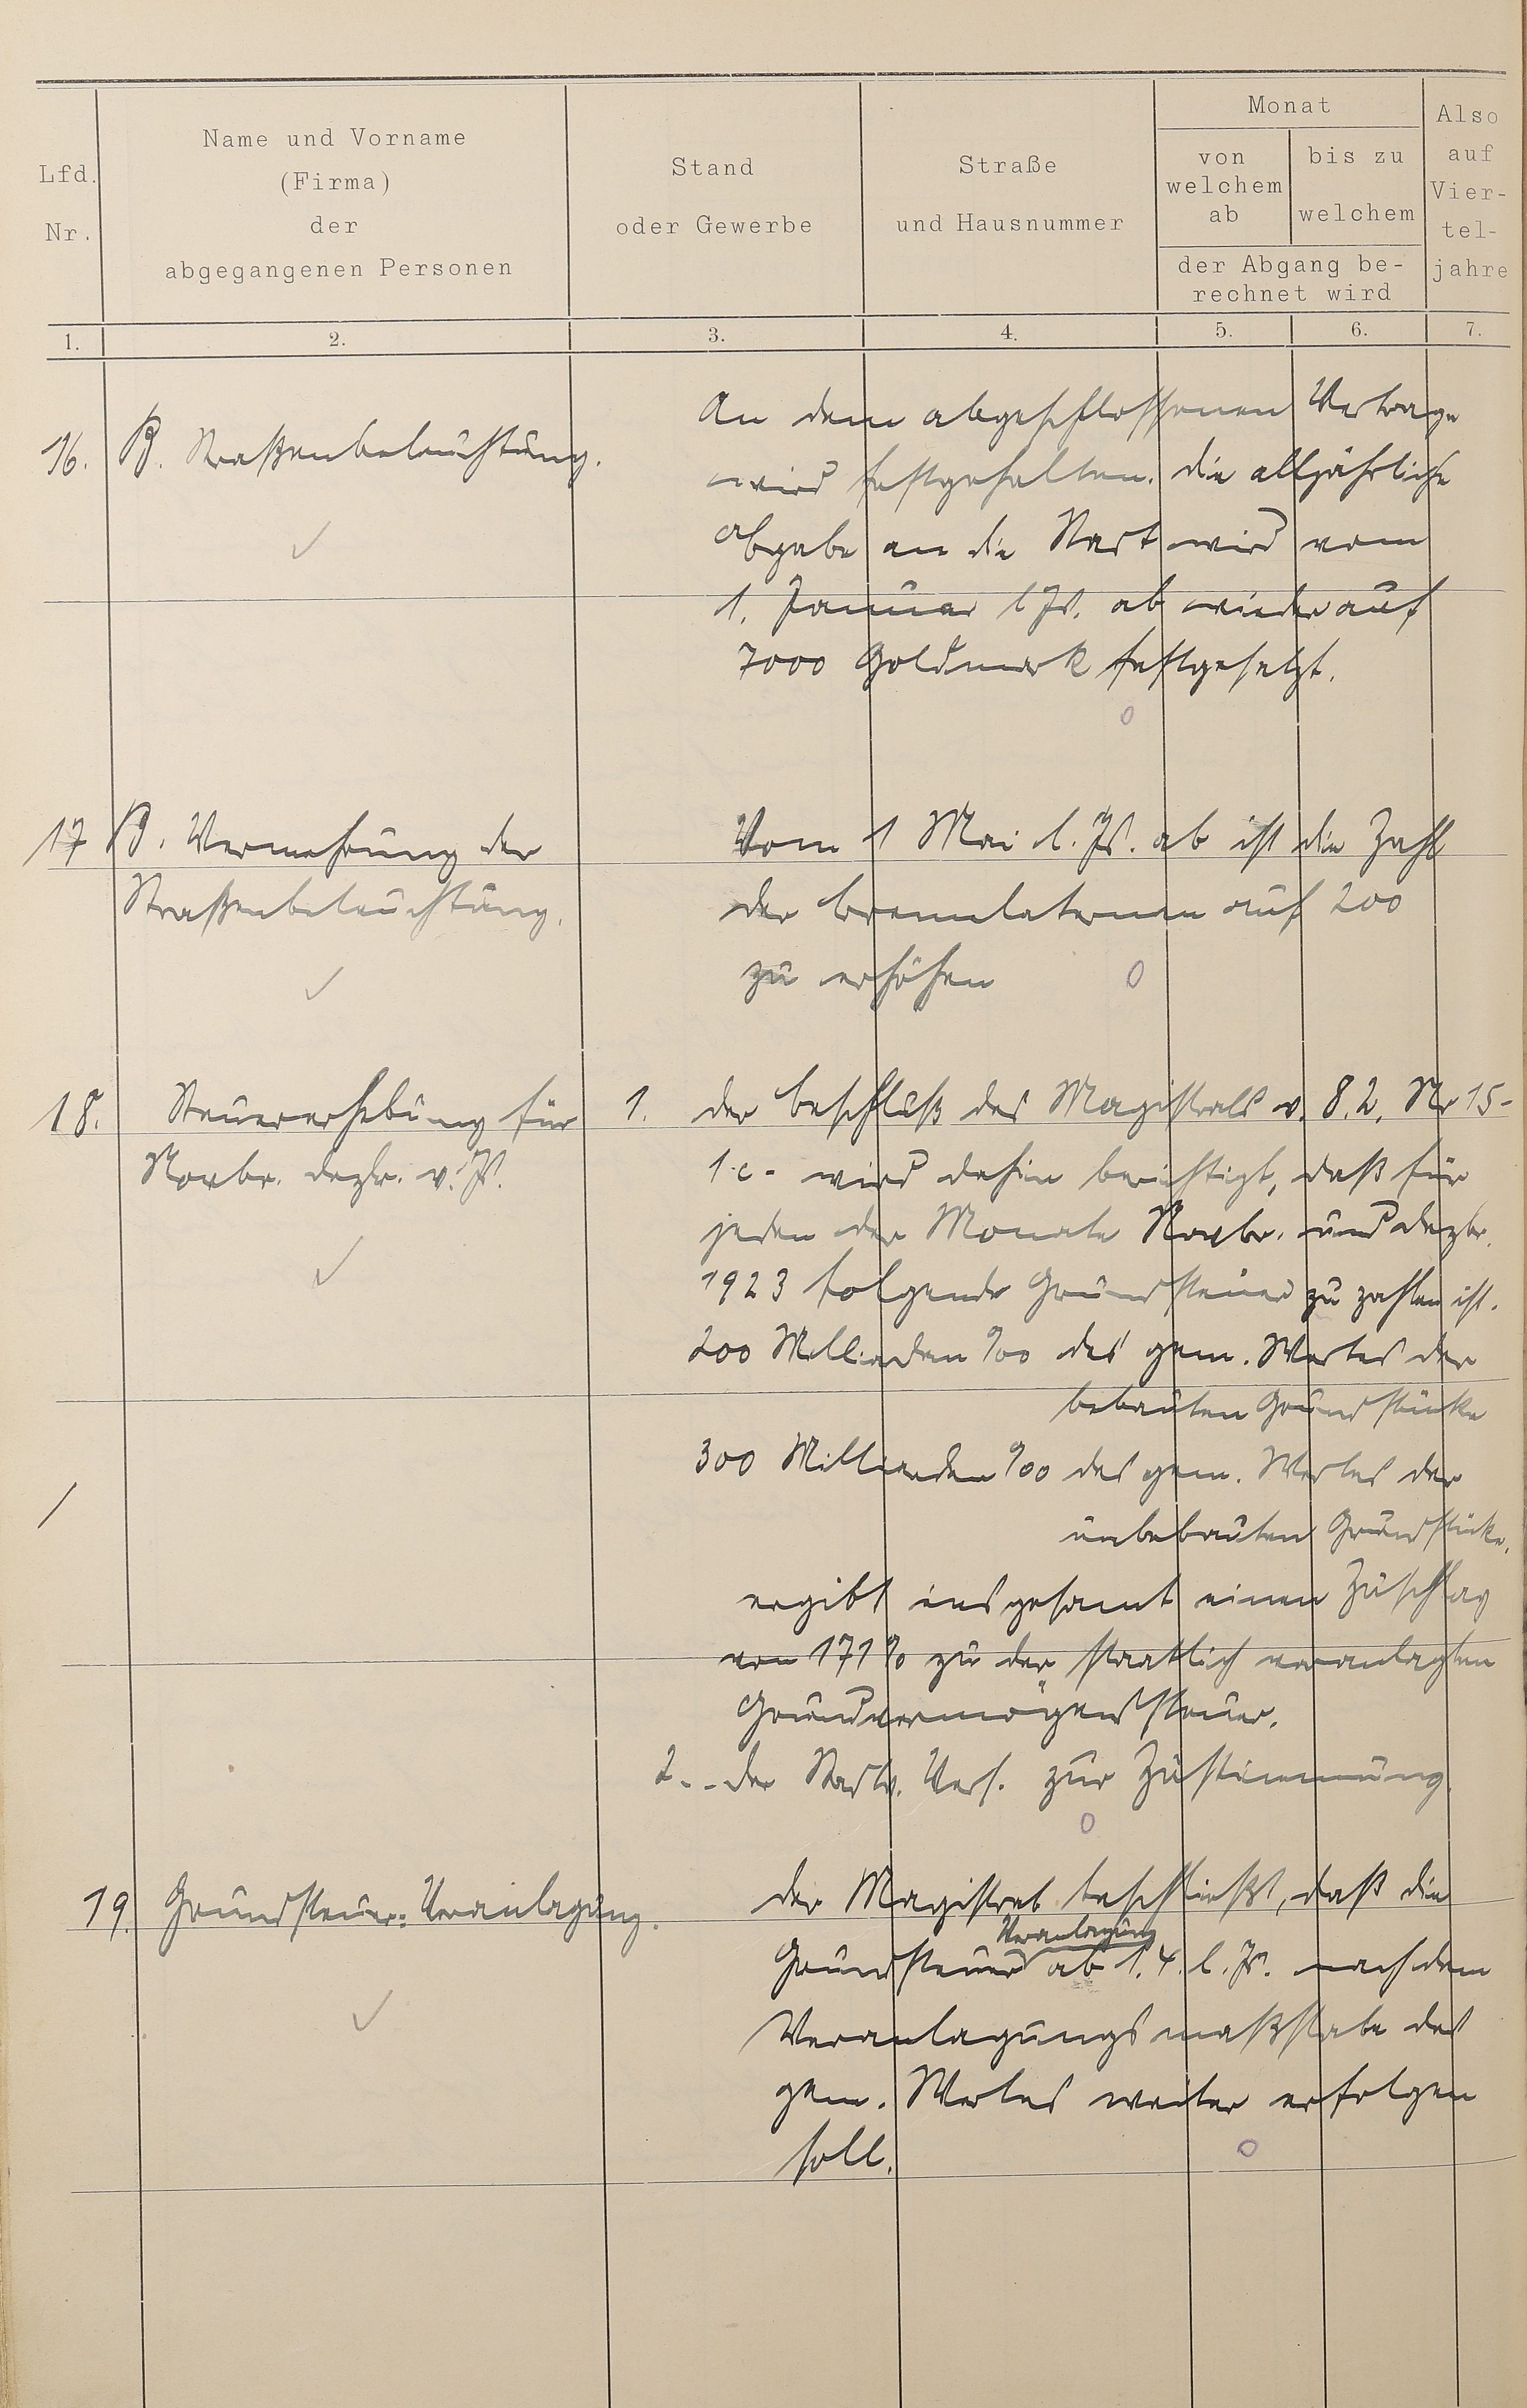 Lfd. Nr.
Name und Vorname
(Firma)
der
abgegangenen Personen
Stand
oder Gewerbe
Straße
und Hausnummer
Monat
von
welchem
ab
bis zu
welchem
der Abgang be-
rechnet wird
Also
auf
Vier-
tel-
jahre
1. 2. 3. 4. 5. 6. 7.
16. B. Straßenbeleuchtung.
An dem abgeschlossenen Vertrage
wird festgehalten. die alljährliche
Abgabe an die Stadt wird vom
1. Januar l Js. ab wieder auf
7000 Goldmark festgesetzt.
17 B. Vermehrung der
Straßenbeleuchtung.
Vom 1 Mai l. Js. ab ist die Zahl
der Brennlaternen auf 200
zu erhöhen
18. Steuererhebung für
Novbr. Dezbr. v. Js.
1. der Beschluß des Magistrats v. 8.2. Nr 15-
1.c- wird dahin berichtigt, daß für
jeden der Monate Novbr. und Dezbr.
1923 folgende Grundsteuer zu zahlen ist.
200 Milliarden ‰ des gem. Wertes der
bebauten Grundstücke
300 Milliarden ‰ des gem. Wertes der
unbebauten Grundstücke.
ergibt insgesamt einen Zuschlag
von 171% zu der staatlich veranlagten
Grundvermögenssteuer.
2. - der Stadtv. Vers. zur Zustimmung.
19. Grundsteuer-Veranlagung.
der Magistrat beschließt, daß die
Veranlagung
Grundsteuer ab 1.4. l. Js. nach dem
Veranlagungsmaßstabe des
gem. Wertes weiter erfolgen
soll.